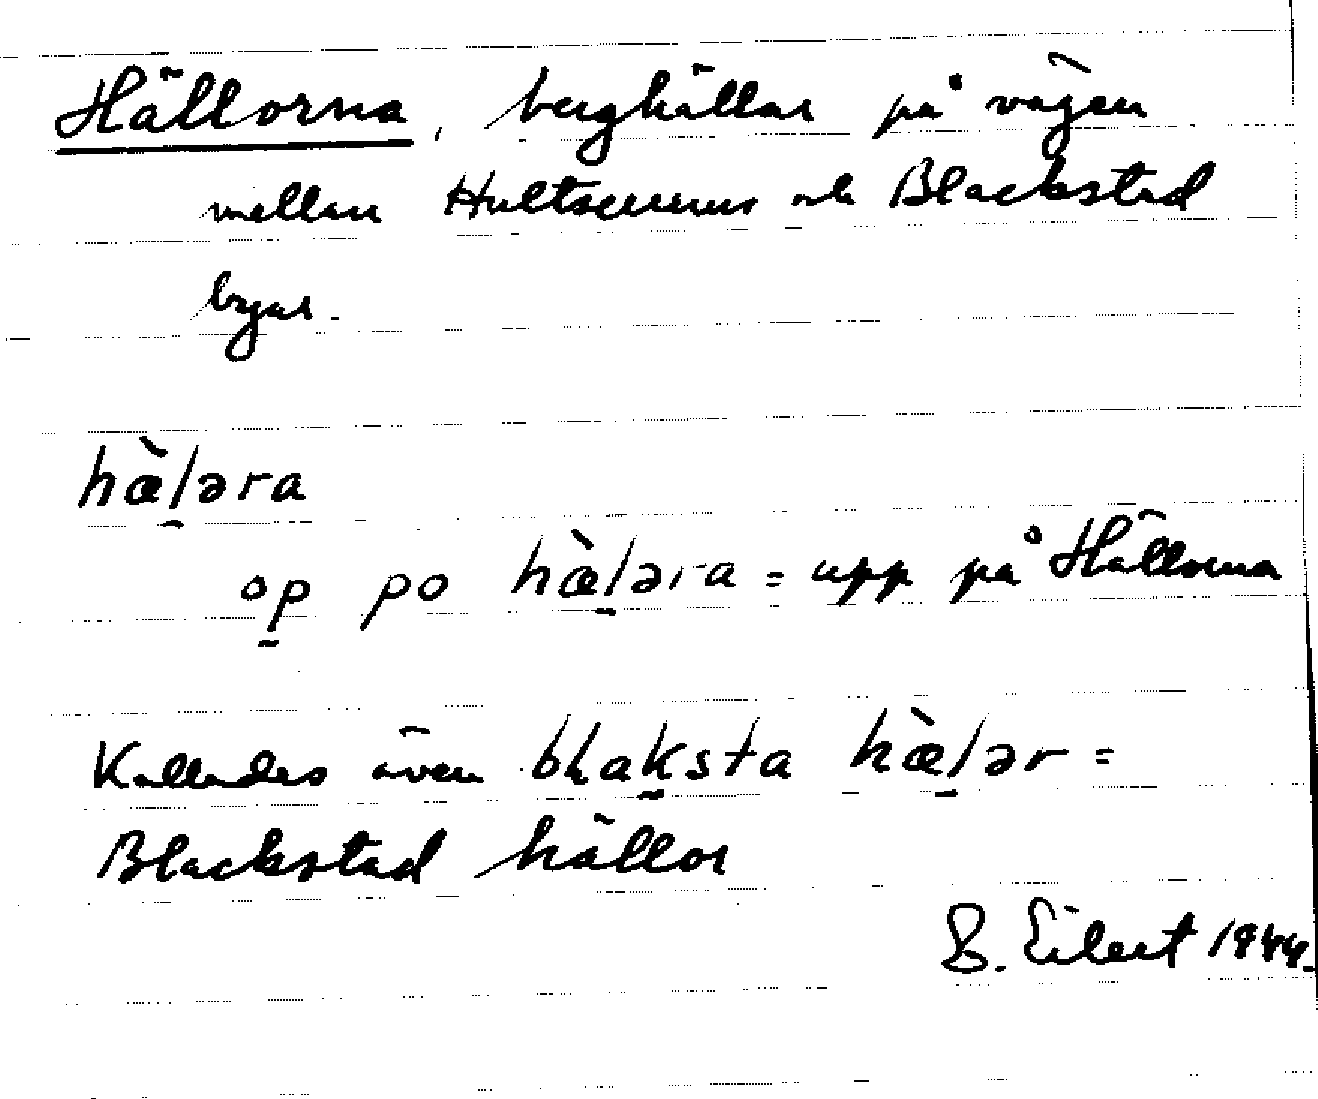 Hällorna, berghällar på vägen
mellan Hultserums och Blackstad
byar.
hæ̀l̠əra
op̠ po hæ̀l̠əra = upp på Hällorna
Kallades även blak̠sta hæ̀l̠ər =
Blackstad hällor
B. Eilert 1944.